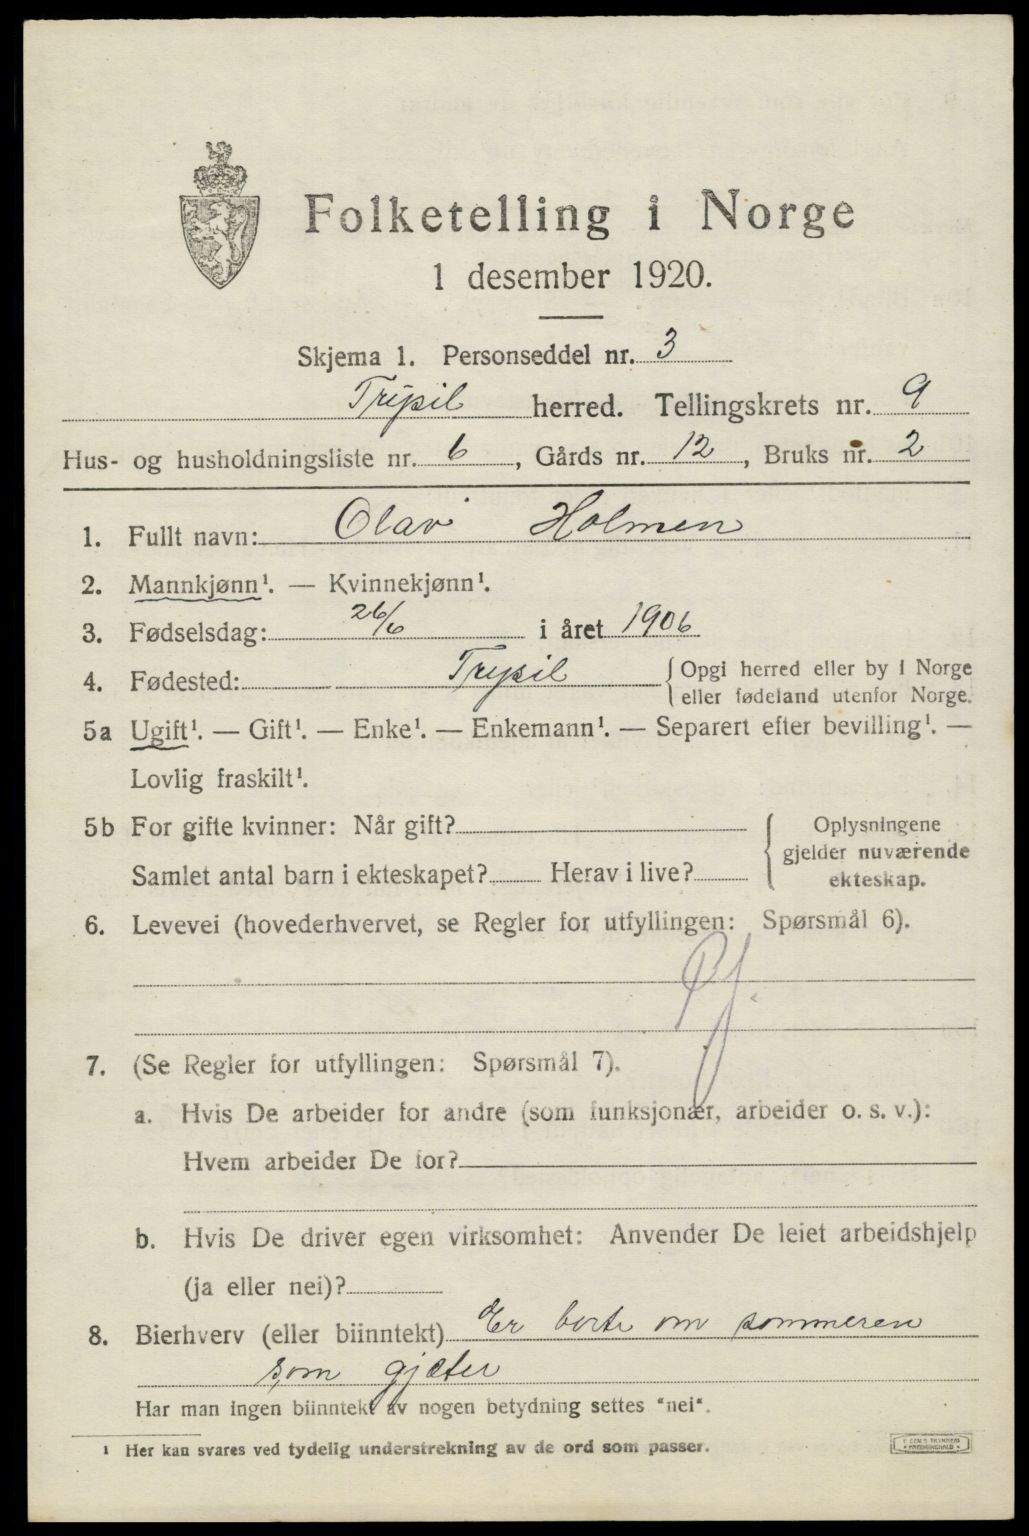 Folketelling i Norge
1 desember 1920.
Skjema 1. Personseddel nr. 3
Trysil herred. Tellingskrets nr. 9
Hus- og husholdningsliste nr. 6, Gårds nr. 12, Bruks nr. 2
1. Fullt navn: Olav Holmen
2. Mannkjønn¹. — Kvinnekjønn¹.
3. Fødselsdag: 26/6 i året 1906
4. Fødested: Trysil { Opgi herred eller by i Norge
eller fødeland utenfor Norge.
5a Ugift¹. — Gift¹. — Enke¹. — Enkemann¹. — Separert efter bevilling¹. —
Lovlig fraskilt¹.
5b For gifte kvinner: Når gift?
Samlet antal barn i ekteskapet? Herav i live?
{ Oplysningene
gjelder nuværende
ekteskap.
6. Levevei (hovederhvervet, se Regler for utfyllingen: Spørsmål 6).
7. (Se Regler for utfyllingen: Spørsmål 7).
a. Hvis De arbeider for andre (som funksjonær, arbeider o. s. v.):
Hvem arbeider De for?
b. Hvis De driver egen virksomhet: Anvender De leiet arbeidshjelp
(ja eller nei)?
8. Bierhverv (eller biinntekt) Er borte om sommeren
som gjæter
Har man ingen biinntekt av nogen betydning settes "nei".
¹ Her kan svares ved tydelig understrekning av de ord som passer.